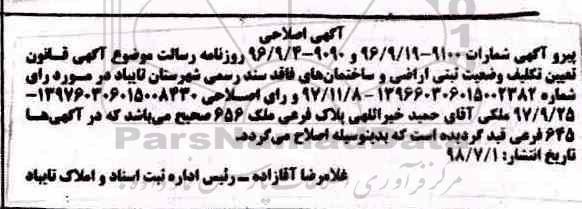 آگهی اصلاحی
پیرو آگهی شمارات ۹۱۰۰-۹۶/۹/۱۹ و ۹۰۹۰-۹۶/۹/۴ روزنامه رسالت موضوع آگهی قانون
تعیین تکلیف وضعیت ثبتی اراضی و ساختمان‌های فاقد سند رسمی شهرستان تایباد در مورد رای
شماره ۱۳۹۶۶۰۳۰۶۰۱۵۰۰۲۳۸۲ - ۹۷/۱۱/۸ و رای اصلاحی ۱۳۹۷۶۰۳۰۶۰۱۵۰۰۸۴۳۰-
۹۷/۹/۲۵ ملکی آقای حمید خیراللهی پلاک فرعی ملک ۶۵۶ صحیح می‌باشد که در آگهی‌ها
۶۴۵ فرعی قید گردیده است که بدینوسیله اصلاح می‌گردد.
تاریخ انتشار: ۹۸/۷/۱
غلامرضا آقازاده - رئیس اداره ثبت اسناد و املاک تایباد